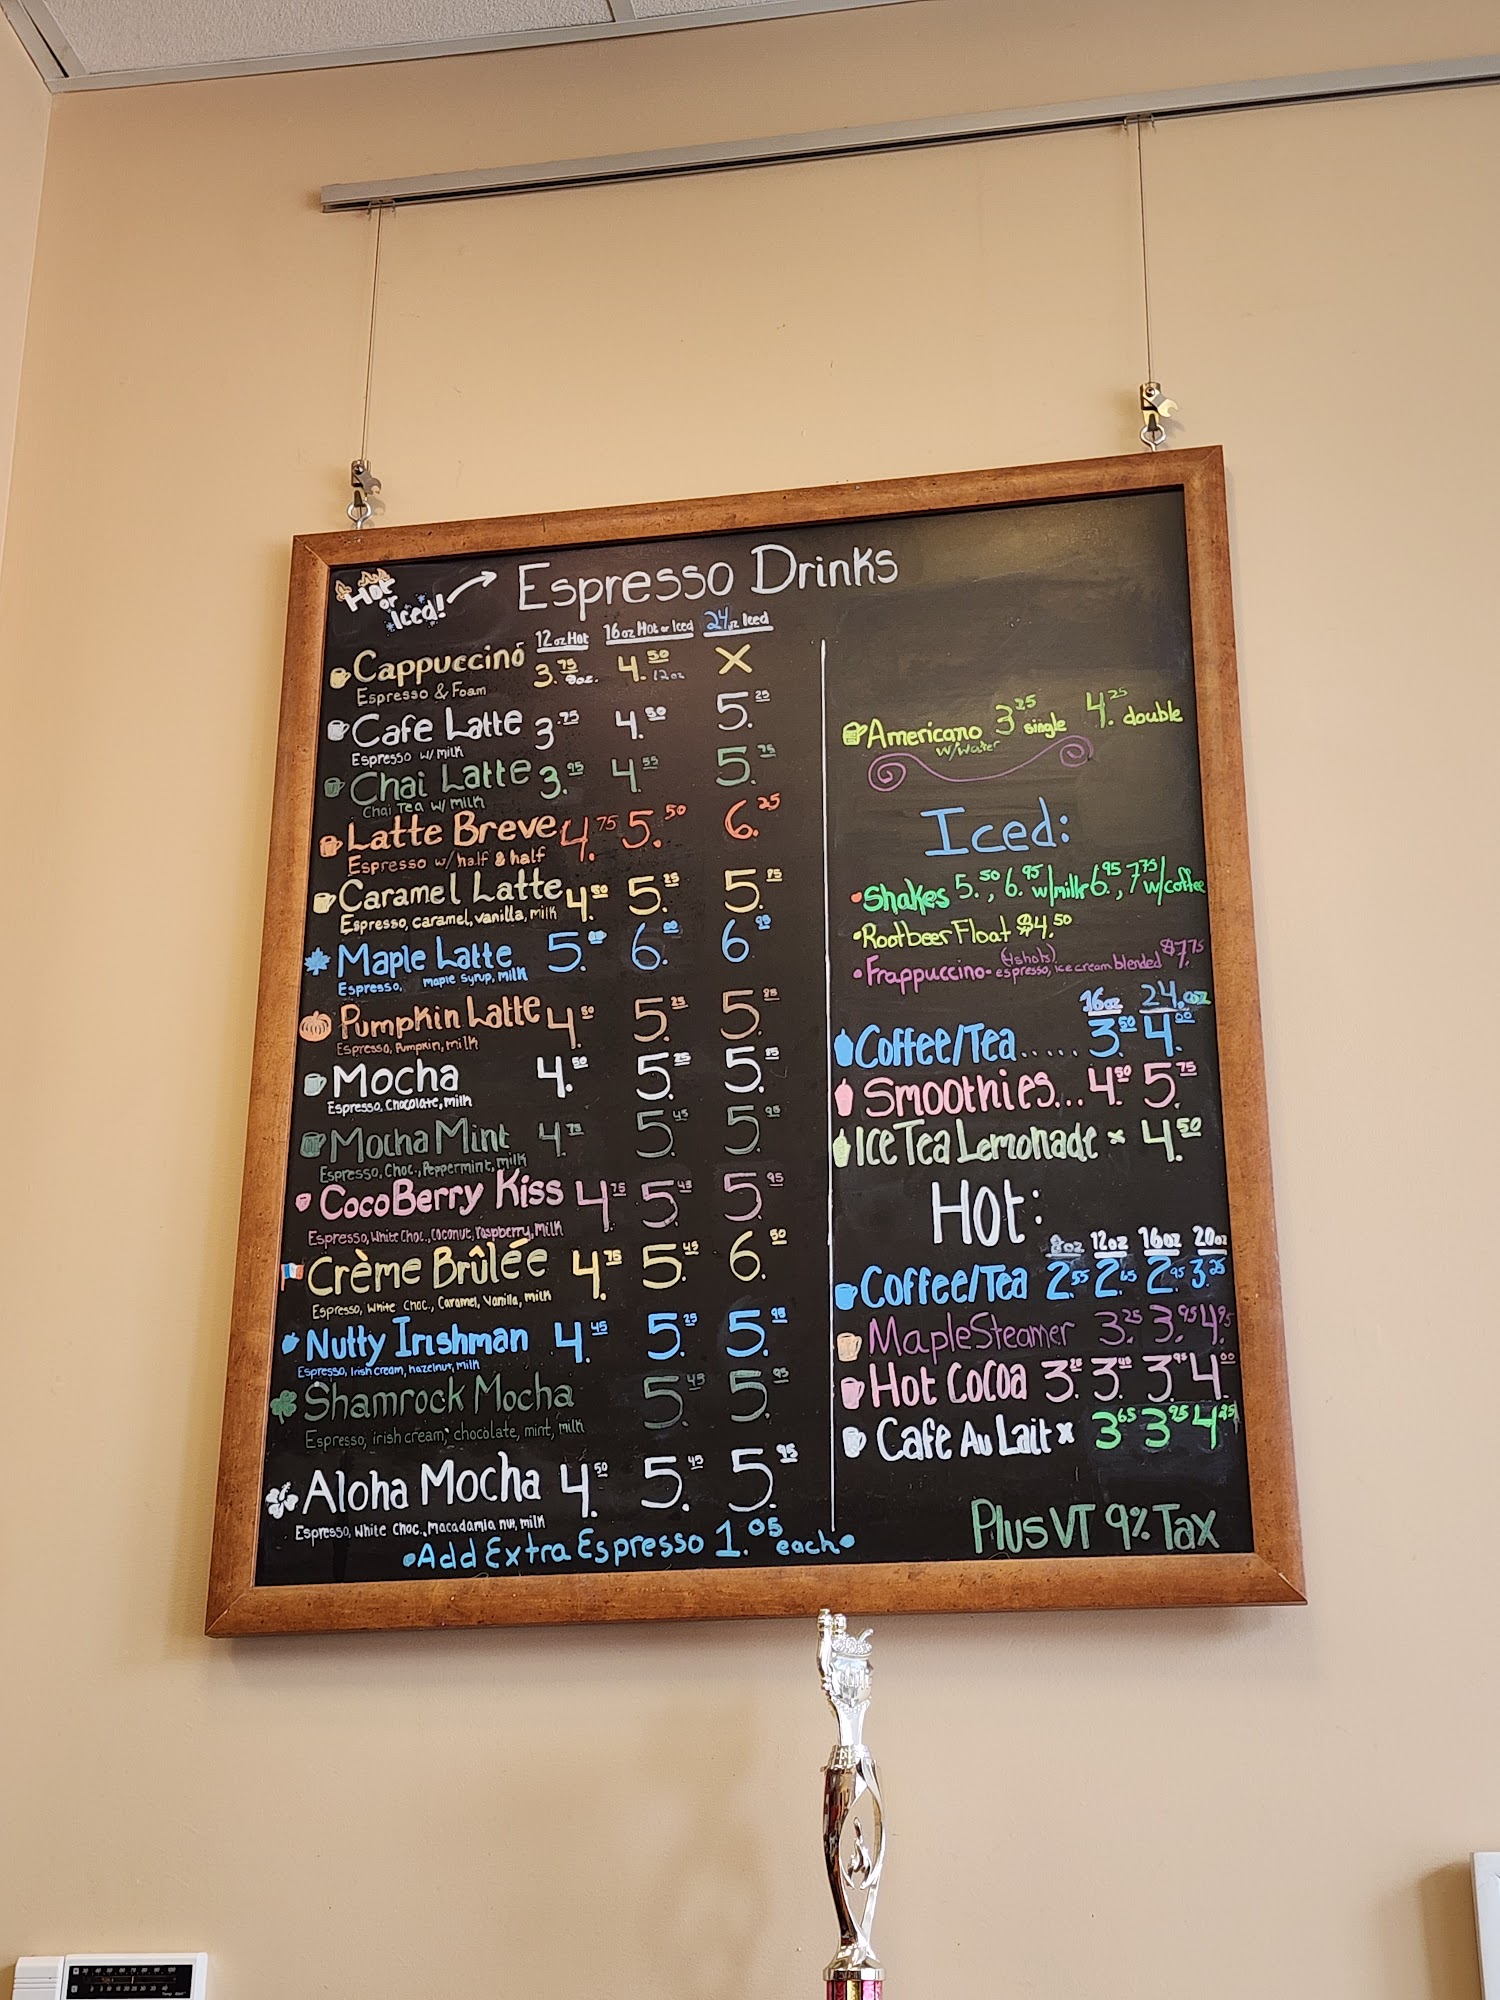 Hot or Iced! → Espresso Drinks
12oz Hot 16oz Hot or Iced 24oz Iced
Cappuccino 3.75 8oz. 4.50 12oz X
Espresso & Foam
Cafe Latte 3.75 4.50 5.25
Espresso w/ milk
Chai Latte 3.95 4.55 5.75
Chai Tea w/ milk
Latte Breve 4.75 5.50 6.25
Espresso w/ half & half
Caramel Latte 4.50 5.25 5.75
Espresso, caramel, vanilla, milk
Maple Latte 5.00 6.00 6.95
Espresso, maple syrup, milk
Pumpkin Latte 4.50 5.25
Espresso, Pumpkin, milk
Mocha 4.50 5.25 5.75
Espresso, Chocolate, milk
Mocha Mint 4.75 5.45 5.95
Espresso, Choc., Peppermint, milk
CocoBerry Kiss 4.75 5.45 5.95
Espresso, White Choc., Coconut, raspberry, milk
Crème Brûlée 4.75 5.45 6.50
Espresso, White Choc., Caramel, Vanilla, milk
Nutty Irishman 4.45 5.25 5.95
Espresso, Irish cream, hazelnut, milk
Shamrock Mocha 5.45 5.95
Espresso, irish cream, chocolate, mint, milk
Aloha Mocha 4.50 5.45 5.95
Espresso, White Choc., Macadamia nut, milk
•Add Extra Espresso 1.05 each•
Americano 3.25 single 4.25 double
w/water
Iced:
•Shakes 5.50, 6.95 w/milk 6.95, 7.75 w/coffee
•Rootbeer Float $4.50
•Frappuccino- (4shots) espresso, ice cream blended $7.75
16oz 24.oz
Coffee/Tea..... 3.50 4.00
Smoothies... 4.50 5.75
Ice Tea Lemonade × 4.50
Hot:
8oz 12oz 16oz 20oz
Coffee/Tea 2.55 2.65 2.95 3.25
Maple Steamer 3.25 3.95 4.95
Hot Cocoa 3.25 3.40 3.95 4.00
Cafe Au Lait x 3.65 3.95 4.25
Plus VT 9% Tax